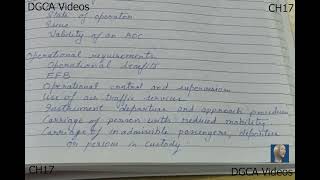 DGCA Videos
CH17
State of operator
Issue
Validity of an AOC
Operational requirements
Operational benefits
EFB
Operational control and supervision
Use of air traffic services
Instrument departure and approach procedures
Carriage of person with reduced mobility
Carriage of inadmissible passengers, deportees
or persons in custody
CH17
DGCA Videos